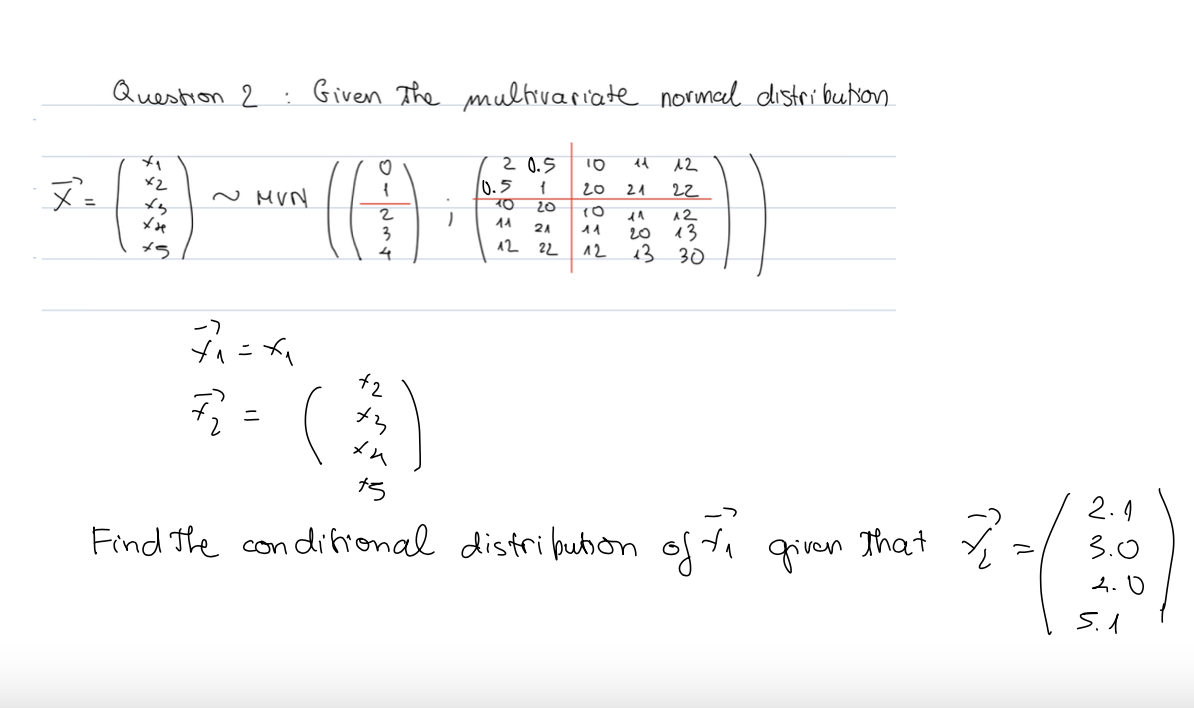 Question 2 : Given The multivariate normal distribution
X⃗ = (x1 x2 x3 x4 x5) ~ MVN ((0 1 2 3 4) ; (2 0.5 10 11 12
0.5 1 20 21 22
10 20 10 11 12
11 21 11 20 13
12 22 12 13 30))
x⃗1 = x1
x⃗2 = (x2
x3
x4
x5)
Find The conditional distribution of x⃗1 given That x⃗2 = (2.1
3.0
4.0
5.1)